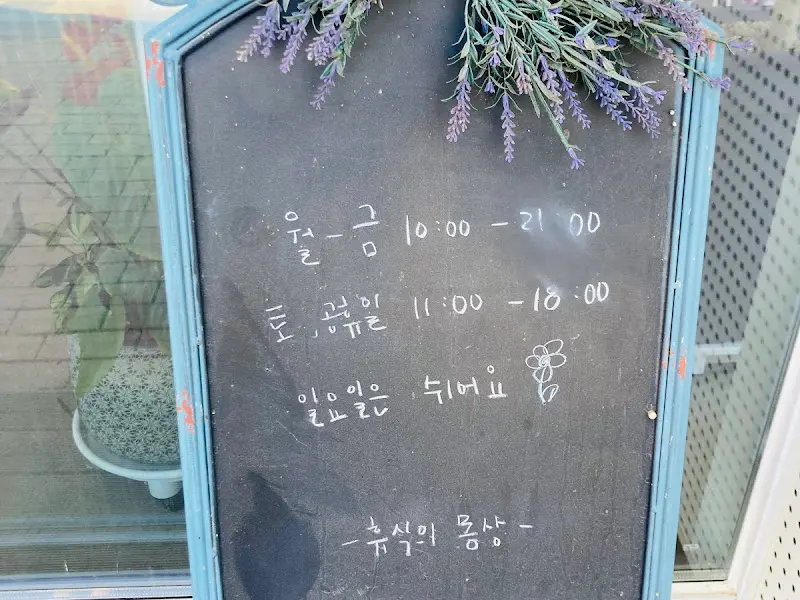 월 - 금 10:00 - 21:00
토, 공휴일 11:00 - 18:00
일요일은 쉬어요
- 휴식의 몽상 -